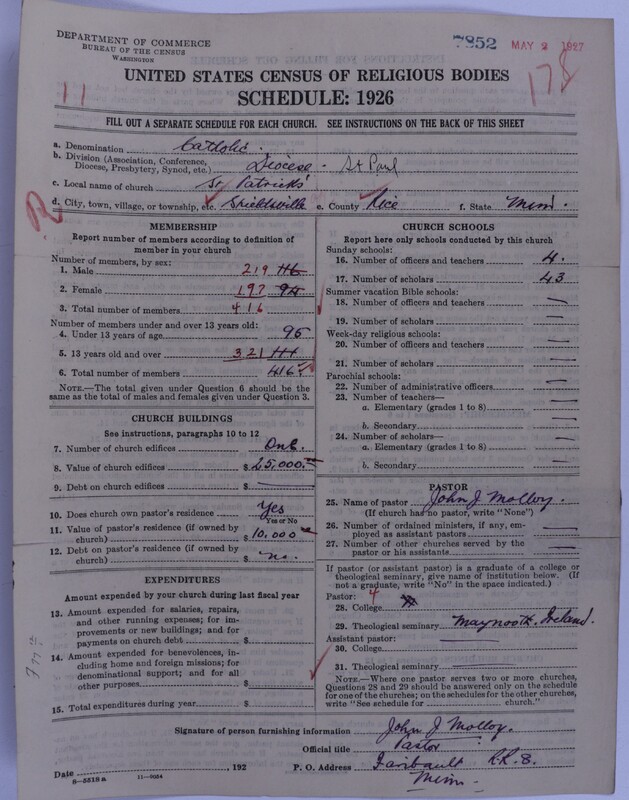 DEPARTMENT OF COMMERCE
BUREAU OF THE CENSUS
WASHINGTON
7852 MAY 2 1927
178
UNITED STATES CENSUS OF RELIGIOUS BODIES
SCHEDULE: 1926
11
FILL OUT A SEPARATE SCHEDULE FOR EACH CHURCH. SEE INSTRUCTIONS ON THE BACK OF THIS SHEET
a. Denomination Catholic
b. Division (Association, Conference, Diocese, Presbytery, Synod, etc.) Diocese - St Paul
c. Local name of church St Patricks
d. City, town, village, or township, etc. Shieldsville e. County Rice f. State Minn.
MEMBERSHIP
Report number of members according to definition of
member in your church
Number of members, by sex:
1. Male 219
2. Female 197 94
3. Total number of members 416
Number of members under and over 13 years old:
4. Under 13 years of age 95
5. 13 years old and over 321
6. Total number of members 416
NOTE.—The total given under Question 6 should be
same as the total of males and females given under Question 3.
CHURCH BUILDINGS
See instructions, paragraphs 10 to 12
7. Number of church edifices One.
8. Value of church edifices $ 25,000.
9. Debt on church edifices $
10. Does church own pastor's residence? Yes
Yes or No
11. Value of pastor's residence (if owned by
church) $ 10,000
12. Debt on pastor's residence (if owned by
church) $ no.
EXPENDITURES
Amount expended by your church during last fiscal year
13. Amount expended for salaries, repairs,
and other running expenses; for im-
provements or new buildings; and for
payments on church debt $
14. Amount expended for benevolences, in-
cluding home and foreign missions; for
denominational support; and for all
other purposes $
15. Total expenditures during year $
CHURCH SCHOOLS
Report here only schools conducted by this church
Sunday schools:
16. Number of officers and teachers 4.
17. Number of scholars 43
Summer vacation Bible schools:
18. Number of officers and teachers —
19. Number of scholars —
Week-day religious schools:
20. Number of officers and teachers —
21. Number of scholars —
Parochial schools:
22. Number of administrative officers —
23. Number of teachers—
a. Elementary (grades 1 to 8) —
b. Secondary —
24. Number of scholars—
a. Elementary (grades 1 to 8) —
b. Secondary —
PASTOR
25. Name of pastor John J Molloy.
(If church has no pastor, write "None")
26. Number of ordained ministers, if any, em-
ployed as assistant pastors —
27. Number of other churches served by the
pastor or his assistants —
If pastor (or assistant pastor) is a graduate of a college or
theological seminary, give name of institution below. (If
not a graduate, write "No" in the space indicated.)
Pastor: 4
28. College
29. Theological seminary Maynooth, Ireland.
Assistant pastor:
30. College
31. Theological seminary
NOTE.—Where one pastor serves two or more churches,
Questions 28 and 29 should be answered only on the schedule
for one of the churches; on the schedules for the other churches,
write "See schedule for church."
Signature of person furnishing information John J Molloy.
Official title Pastor
Date , 192 P. O. Address Faribault R.R. 8.
Minn
8—5518 a 11—9054